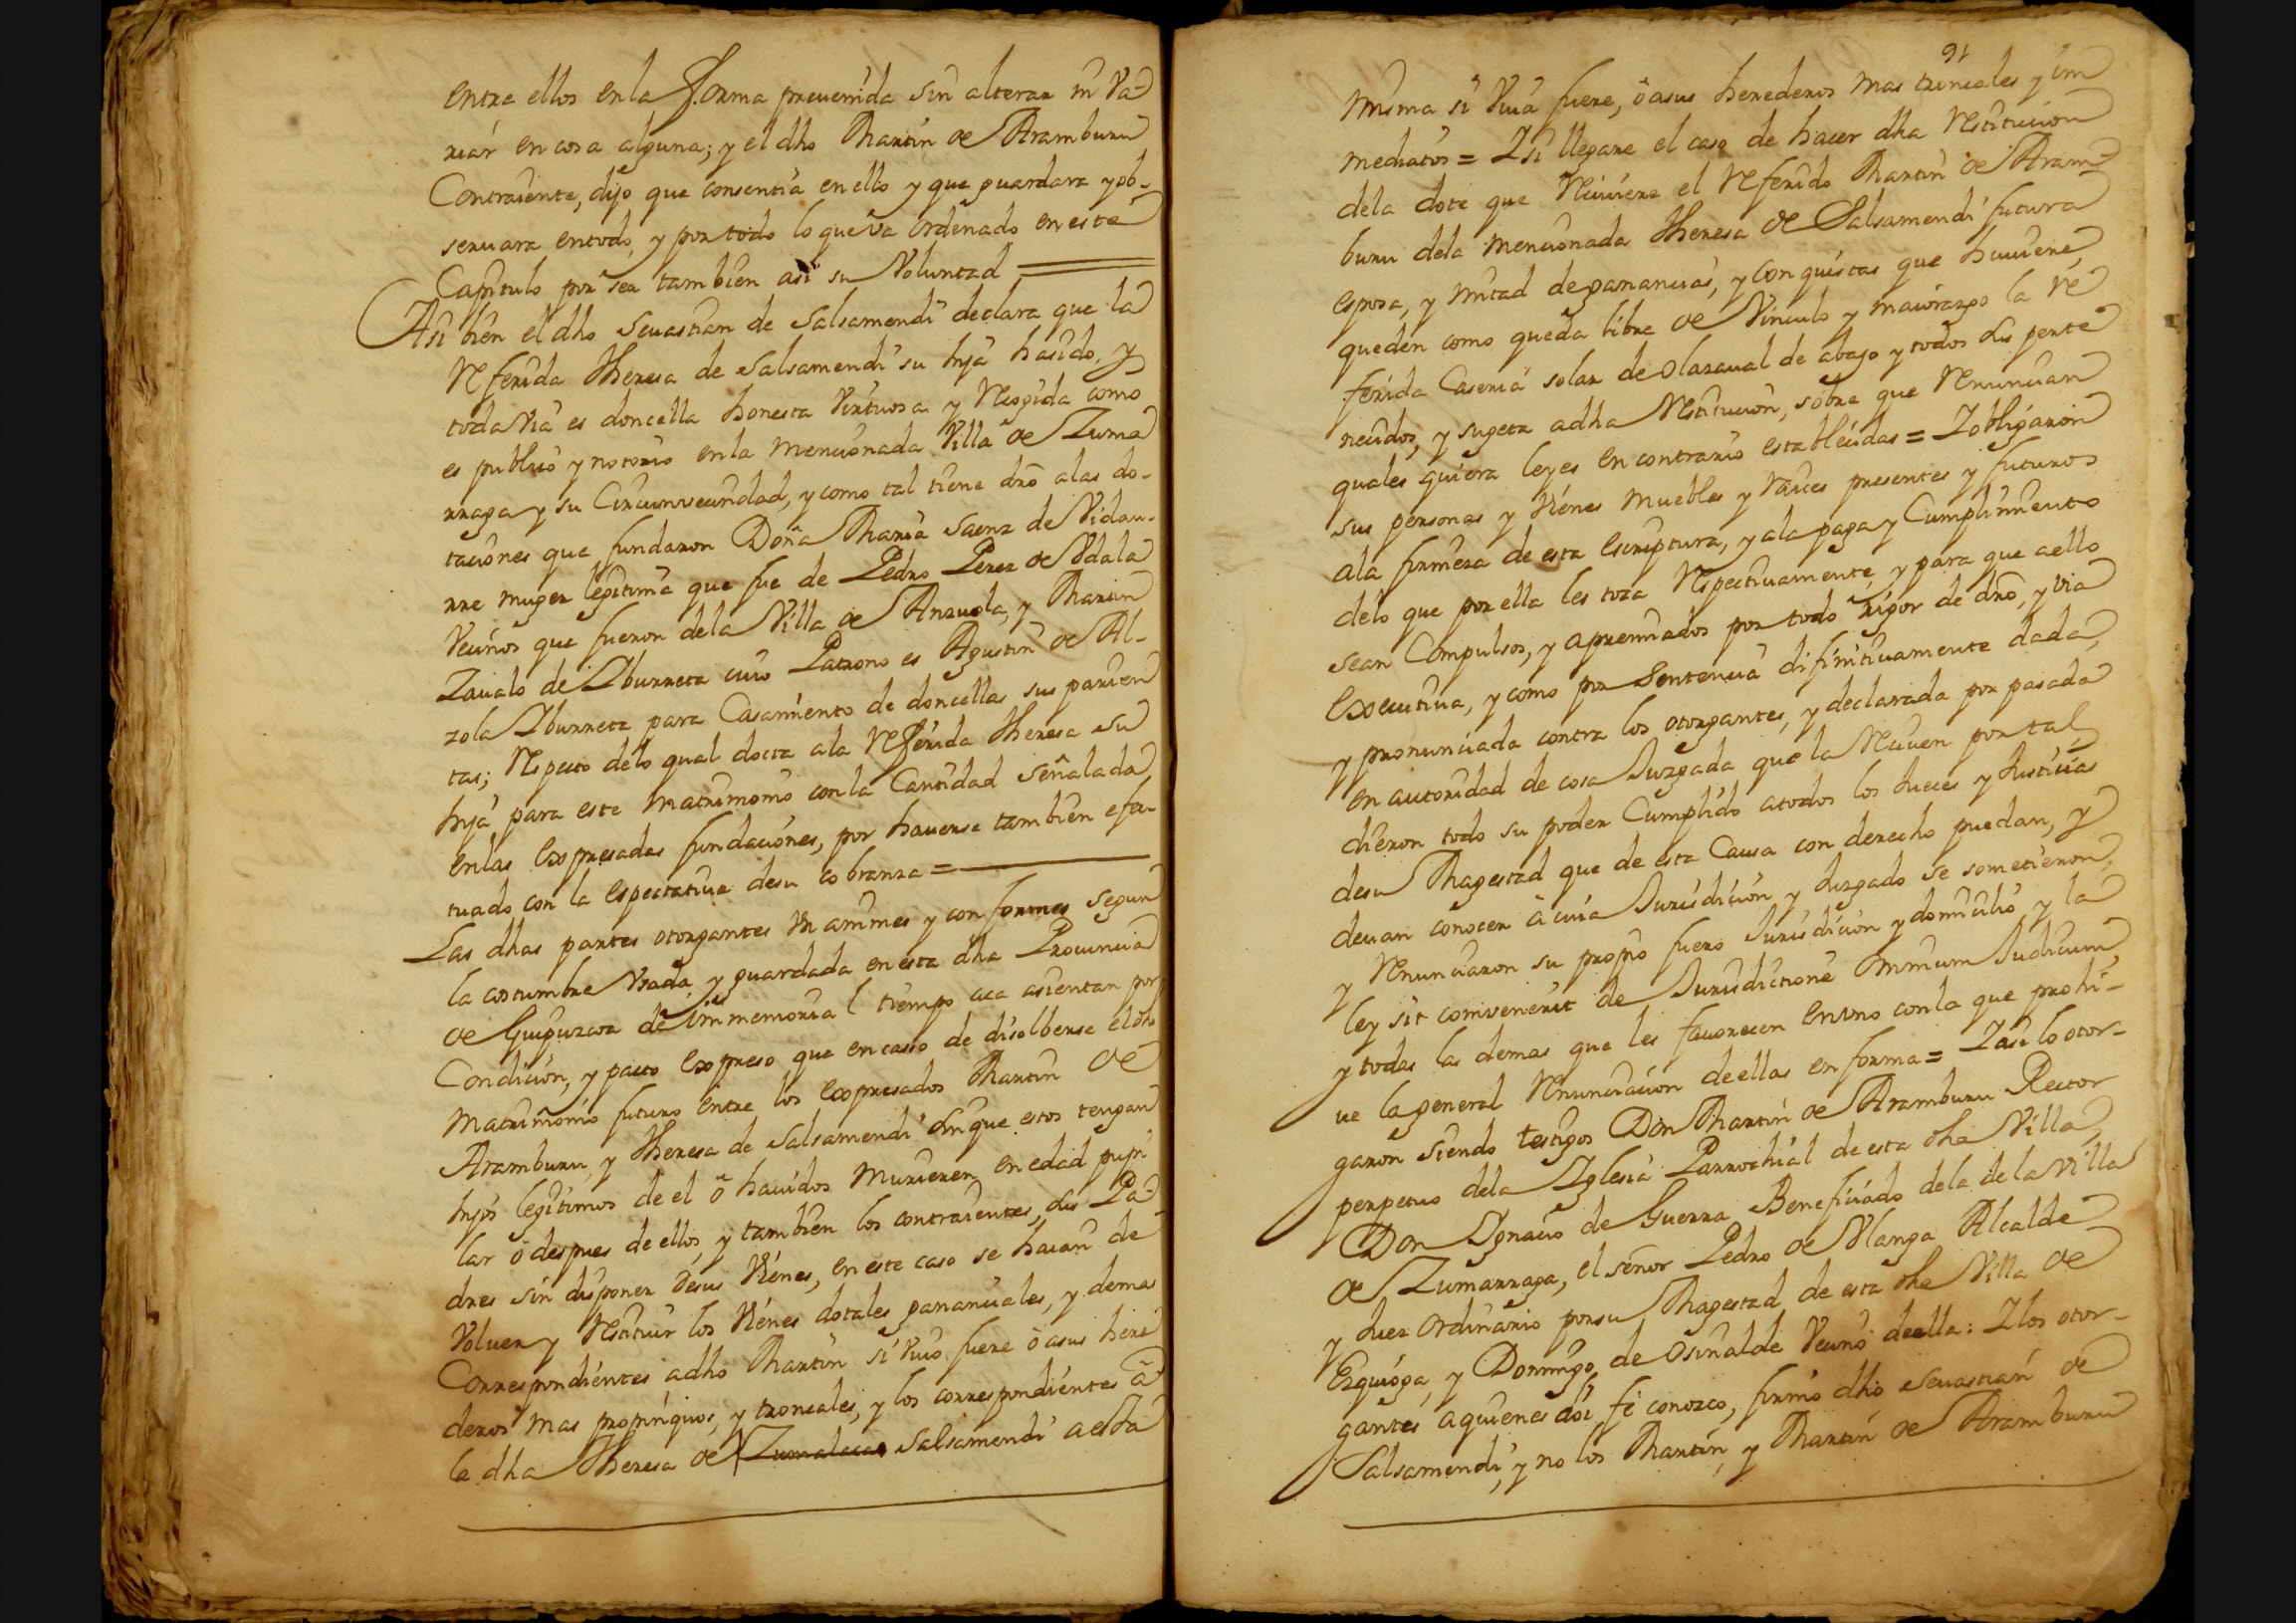 entre ellos en la forma preuenida sin alterar ni Va-
riar en cosa alguna; y el dho Martin de Aramburu
Contraiente, dijo que consentia en ello y que guardara y ob-
seruara en todo, y por todo lo que va ordenado en este
Capitulo por ser tambien asi su Voluntad
Asi bien el dho Seuastian de Salsamendi declara que la
Referida Theresa de Salsamendi su hija ha sido, y
toda Via es doncella honesta Virtuosa y Recogida como
es publico y notorio en la mencionada Villa de Zuma
rraga y su Circunvecindad, y como tal tiene dro a las do-
taciones que fundaron Doña Maria Saenz de Vidau-
rre muger legitima que fue de Pedro Perez de Vdala
Vecinos que fueron de la Villa de Anzuola, y Martin
Zaualo de Yburreta cuio Patrono es Agustin de Al-
zola Yburreta para Casamiento de doncellas sus parien
tas; Respecto de lo qual dota a la Referida Theresa su
hija para este matrimonio con la Cantidad señalada
en las expresadas fundaciones, por hauerse tambien efec-
tuado con la espectatiua de su cobranza =
Las dhas partes otorgantes Vnanimes y conformes segun
la costumbre Vsada, y guardada en esta dha Prouincia
de Guipuzcoa de immemorial tiempo aca asientan por
Condicion, y pacto expreso que en caso de disolberse el dho
Matrimonio futuro entre los expresados Martin de
Aramburu, y Theresa de Salsamendi sin que estos tengan
hijos legitimos de el ó hauidos murieren en edad pupi
lar ó despues de ellos, y tambien los contraientes, sus Pa-
dres sin disponer de sus Vienes, en este caso se haian de
Voluer y Restituir los Vienes dotales gananciales, y demas
Correspondientes a dho Martin si Viuo fuere ó a sus here
deros mas propinquos, y troncales, y los correspondientes á
la dha Theresa de Zumalacar Salsamendi a esta
91
misma si Viua fuere, ó a sus herederos mas troncales y im
mediatos = Y si llegare el caso de hacer dha Restitucion
de la dote que Reciuiere el Referido Martin de Aram-
buru de la mencionada Theresa de Salsamendi futura
esposa, y mitad de ganancias, y conquistas que huuiere,
queden como queda libre de Vinculo y maiorazgo la re
ferida Caseria solar de Olazaual de abajo y todos sus perte
necidos, y sugeta a dha Restitucion, sobre que Renuncian
quales quiera leyes en contrario establecidas = Y obligaron
sus personas y Vienes muebles y raices presentes y futuros
a la firmeza de esta escriptura, y a la paga y Cumplimiento
de lo que por ella les toca Respectiuamente, y para que a ello
sean Compulsos, y apremiados por todo rigor de dro, y via
executiua, y como por Sentencia difinitiuamente dada,
y pronunciada contra los otorgantes, y declarada por pasada
en autoridad de cosa Juzgada que la Reciuen por tal,
dieron todo su poder Cumplido a todos los Jueces y Justicias
de su Magestad que de esta Causa con derecho puedan, y
deuan conocer á cuia Jurisdicion, y Juzgado se sometieron,
y Renunciaron su propio fuero Jurisdicion y domicilio y la
ley sit convenerit de Jurisdictione omnium Judicum,
y todas las demas que les fauorecen en vno con la que prohi-
ue la general Renunciacion de ellas en forma = Y asi lo otor-
garon siendo testigos Don Martin de Aramburu Rector
perpetuo de la Yglesia Parrochial de esta dha Villa,
Don Ygnacio de Guerra Beneficiado de la de la Villa
de Zumarraga, el señor Pedro de Vlanga Alcalde
y Juez Ordinario por su Magestad, de esta dha Villa de
Ezquioga, y Domingo de Osinalde Vecino de ella: Y los otor-
gantes a quienes doi fe conozco, firmó dho Seuastian de
Salsamendi, y no los Martin, y Martin de Aramburu